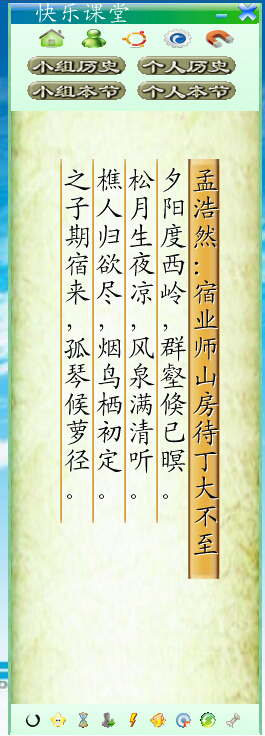 快乐课堂
小组历史 个人历史
小组本节 个人本节
孟浩然：宿业师山房待丁大不至
夕阳度西岭，群壑倏已暝。
松月生夜凉，风泉满清听。
樵人归欲尽，烟鸟栖初定。
之子期宿来，孤琴候萝径。